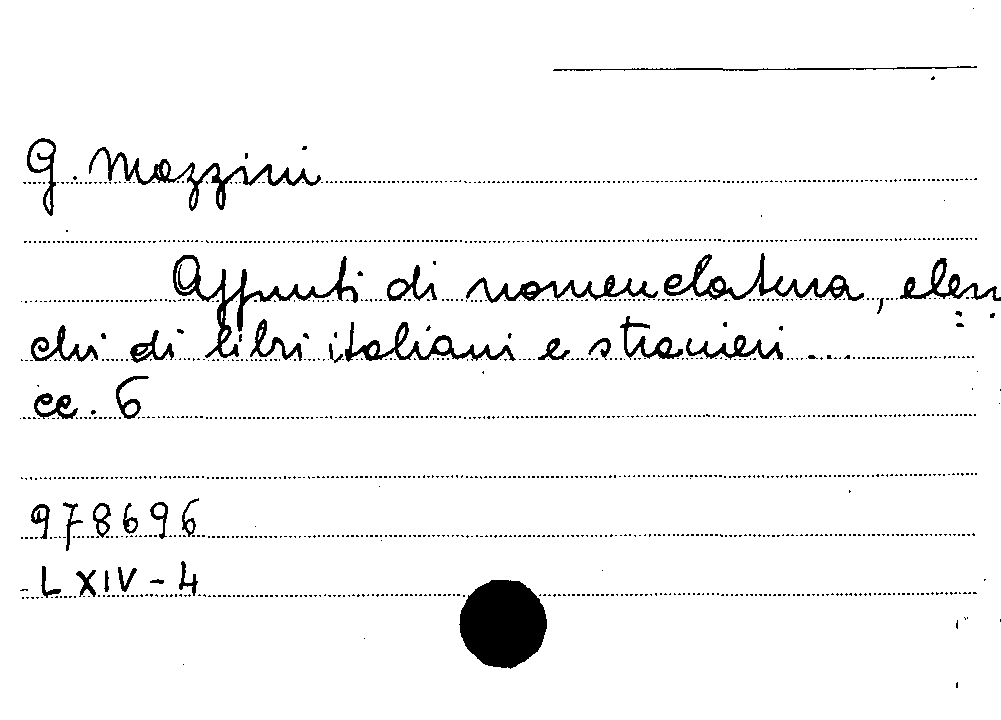 G. Mazzini
Appunti di nomenclatura, elen=
chi di libri italiani e stranieri...
cc. 6
978696
LXIV-4